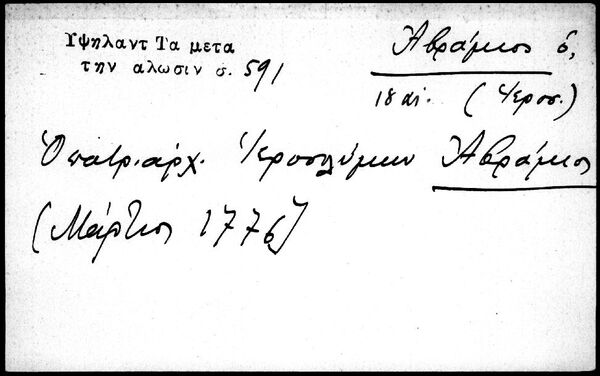 Υψηλαντ Τα μετα
την αλωσιν σ. 591
Ἀβράμιος ὁ,
18 αἰ. (Ἱεροσ.)
Ὁ πατριάρχ. Ἱεροσολύμων Ἀβράμιος
(Μάρτιος 1776)